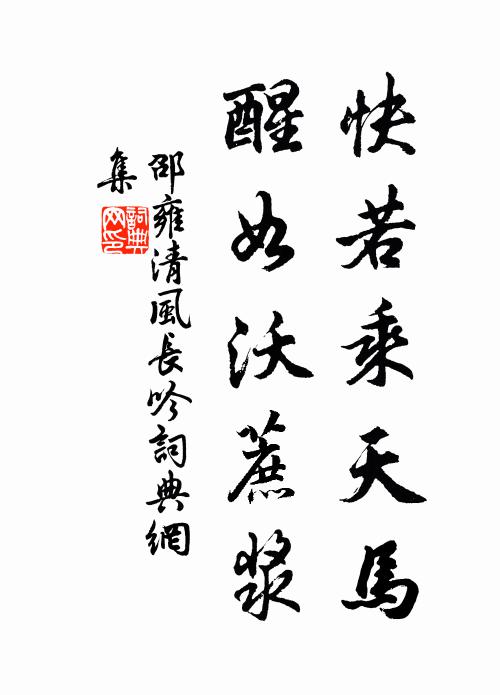 快若乘天馬
醒如沃蔗漿
邵雍清風長吟詞典網
集
詞典
网印